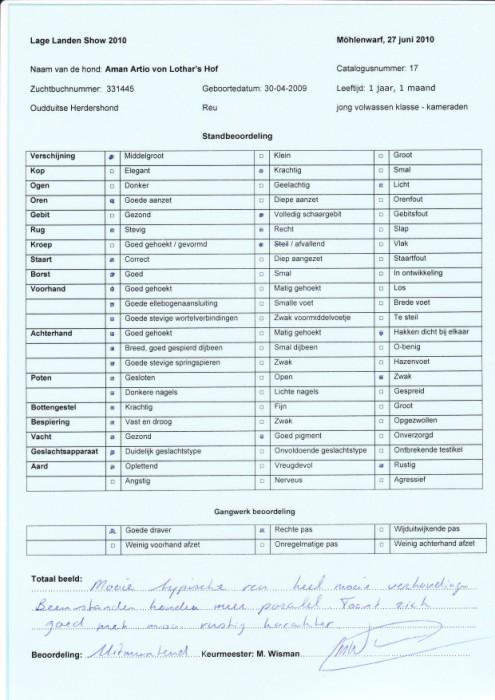 Lage Landen Show 2010 Möhlenwarf, 27 juni 2010
Naam van de hond: Aman Artio von Lothar's Hof Catalogusnummer: 17
Zuchtbuchnummer: 331445 Geboortedatum: 30-04-2009 Leeftijd: 1 jaar, 1 maand
Oudduitse Herdershond Reu jong volwassen klasse - kameraden
Standbeoordeling
Verschijning Middelgroot Klein Groot
Kop Elegant Krachtig Smal
Ogen Donker Geelachtig Licht
Oren Goede aanzet Diepe aanzet Orenfout
Gebit Gezond Volledig schaargebit Gebitsfout
Rug Stevig Recht Slap
Kroep Goed gehoekt / gevormd Steil / afvallend Vlak
Staart Correct Diep aangezet Staartfout
Borst Goed Smal In ontwikkeling
Voorhand Goed gehoekt Matig gehoekt Los
Goede ellebogenaansluiting Smalle voet Brede voet
Goede stevige wortelverbindingen Zwak voormiddelvoetje Te steil
Achterhand Goed gehoekt Matig gehoekt Hakken dicht bij elkaar
Breed, goed gespierd dijbeen Smal dijbeen O-benig
Goede stevige springspieren Zwak Hazenvoet
Poten Gesloten Open Zwak
Donkere nagels Lichte nagels Gespreid
Bottengestel Krachtig Fijn Groot
Bespiering Vast en droog Zwak Opgezwollen
Vacht Gezond Goed pigment Onverzorgd
Geslachtsapparaat Duidelijk geslachtstype Onvoldoende geslachtstype Ontbrekende testikel
Aard Oplettend Vreugdevol Rustig
Angstig Nerveus Agressief
Gangwerk beoordeling
Goede draver Rechte pas Wijduitwijkende pas
Weinig voorhand afzet Onregelmatige pas Weinig achterhand afzet
Totaal beeld: Mooie typische reu heel mooie verhouding
Beenstanden konden meer parallel Toont zich
goed met mooi rustig karakter
Beoordeling: Uitmuntend Keurmeester: M. Wisman